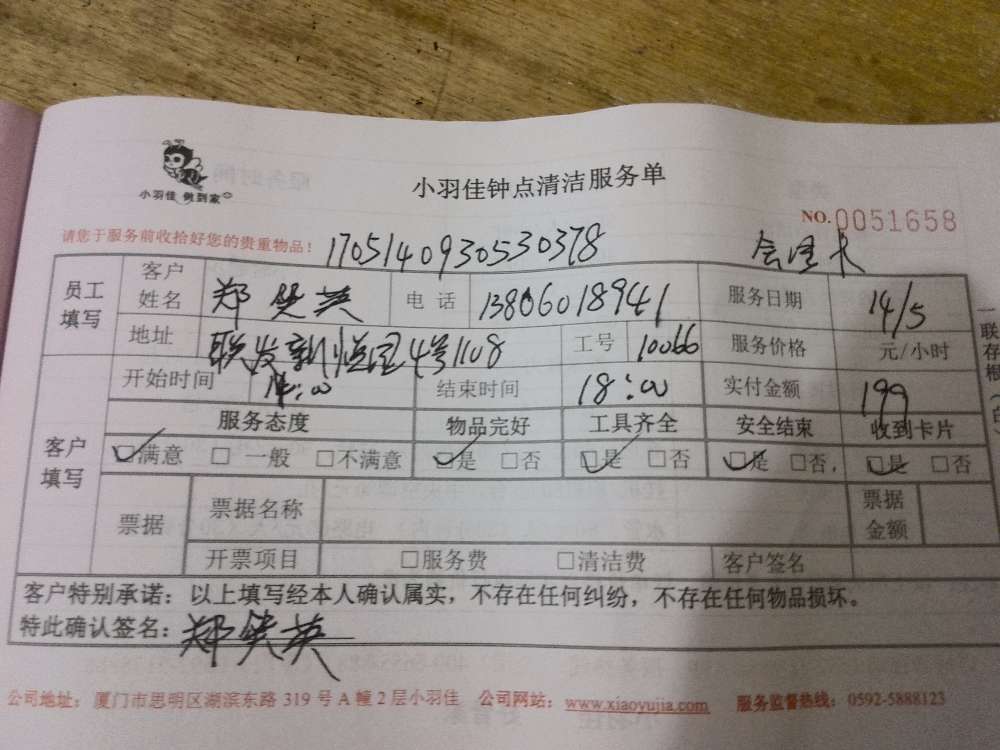 小羽佳 做到家
小羽佳钟点清洁服务单
NO.0051658
请您于服务前收拾好您的贵重物品!
1705140930530378
员工填写 客户姓名 郑 英 电话 13806018941 服务日期 14/5
地址 联发新悦 4号1108 工号 10066 服务价格 元/小时
开始时间 14:00 结束时间 18:00 实付金额 199
客户填写 服务态度 物品完好 工具齐全 安全结束 收到卡片
☑满意 □一般 □不满意 ☑是 □否 ☑是 □否 ☑是 □否, ☑是 □否
票据 票据名称 票据金额
开票项目 □服务费 □清洁费 客户签名
客户特别承诺:以上填写经本人确认属实,不存在任何纠纷,不存在任何物品损坏。
特此确认签名:郑 英
一联存根
公司地址:厦门市思明区湖滨东路 319 号 A 幢 2 层小羽佳 公司网站:www.xiaoyujia.com 服务监督热线:0592-5888123